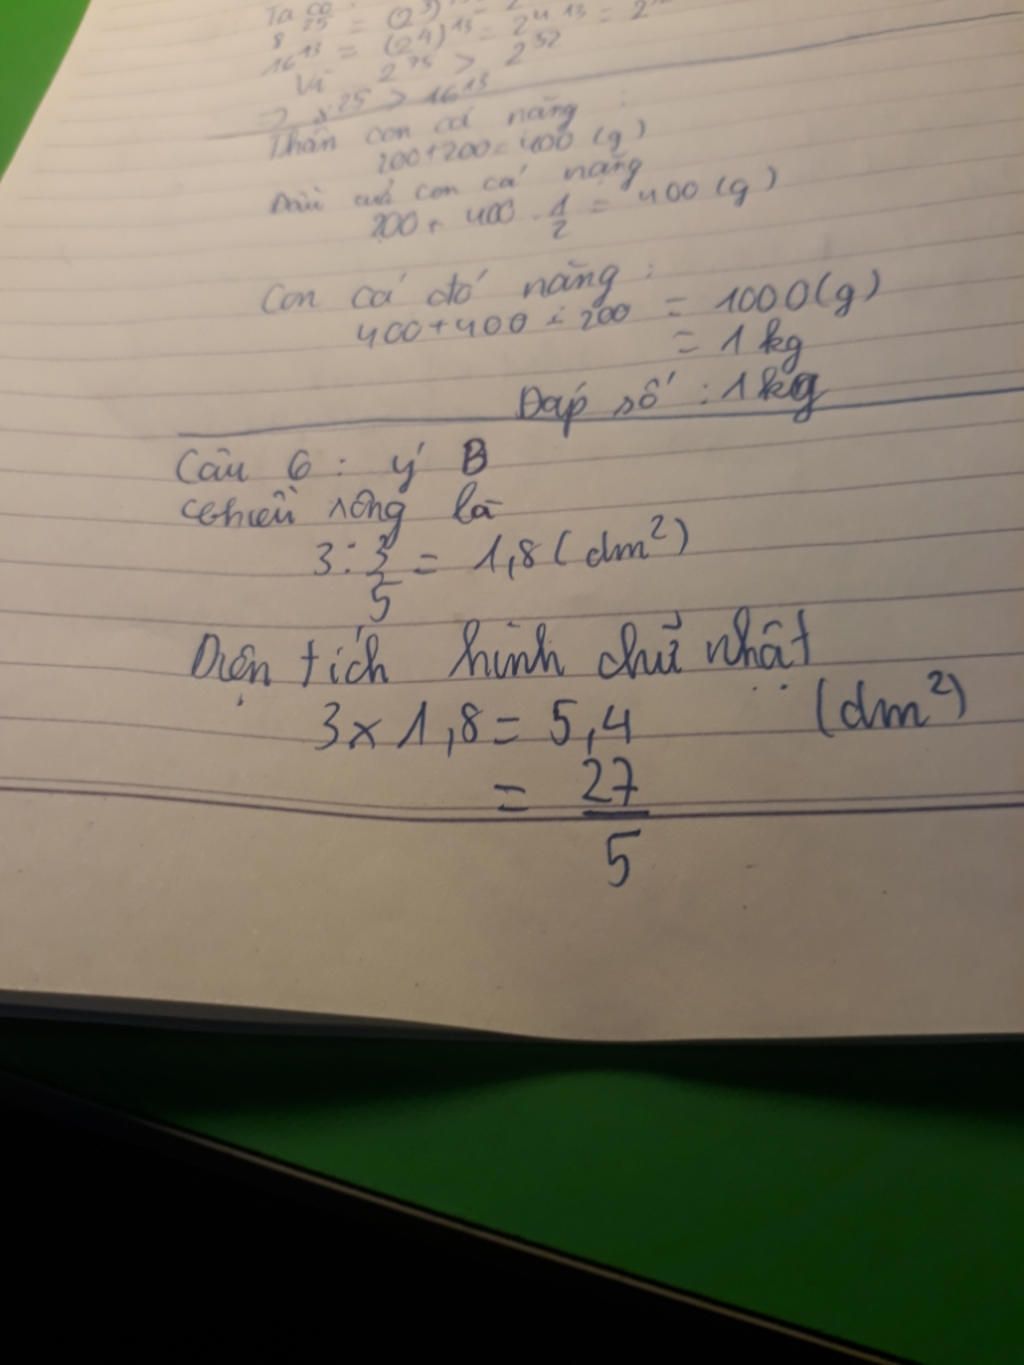 Ta có
8²⁵ = (2³)
16¹³ = (2⁴)¹³ = 2⁴·¹³ = 2
Vì 2⁷⁵ > 2⁵²
=> 8²⁵ > 16¹³
Thân con cá nặng :
200+200=400 (g)
Đầu con cá nặng
200 + 400 . 1/2 = 400 (g)
Con cá đó nặng :
400+400+200 = 1000(g)
= 1 kg
Đáp số : 1 kg
Câu 6 : ý B
chiều rộng là
3 : 3/5 = 1,8 (dm²)
Diện tích hình chữ nhật
3 x 1,8 = 5,4 (dm²)
= 27/5